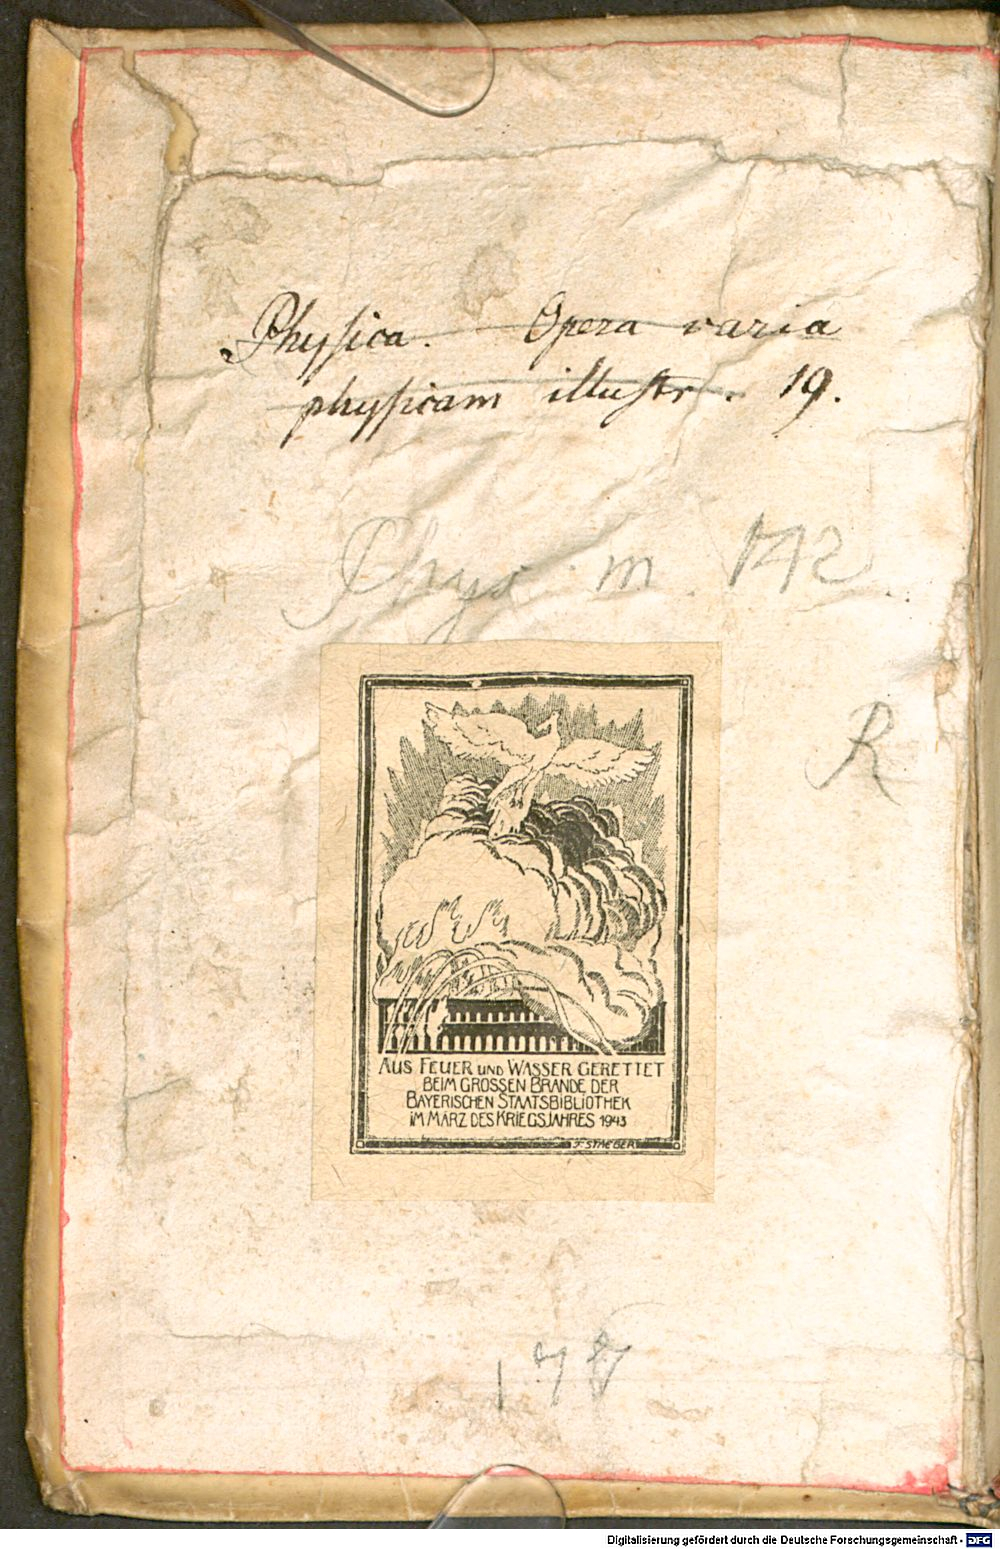 Physica. Opera varia
physicam illustr. 19.
Phys. m. 142
R
AUS FEUER UND WASSER GERETTET
BEIM GROSSEN BRANDE DER
BAYERISCHEN STAATSBIBLIOTHEK
IM MÄRZ DES KRIEGSJAHRES 1943
F. STAEGER
Digitalisierung gefördert durch die Deutsche Forschungsgemeinschaft - DFG